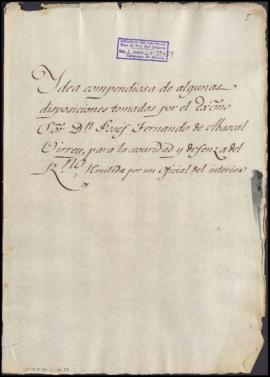 5
Idea compendiosa de algunas
disposiciones tomadas por el Exmo
Sor Dn Josef Fernando de Abascal
Virrey, para la seguridad y defenza del
Rno, remitida por un Oficial del interior